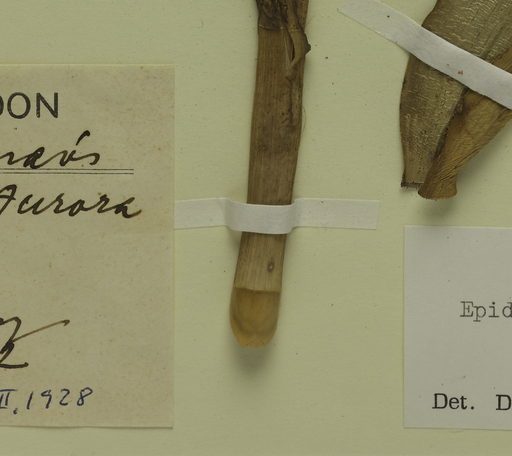 DON
Aurora
II. 1928
Epid
Det. D